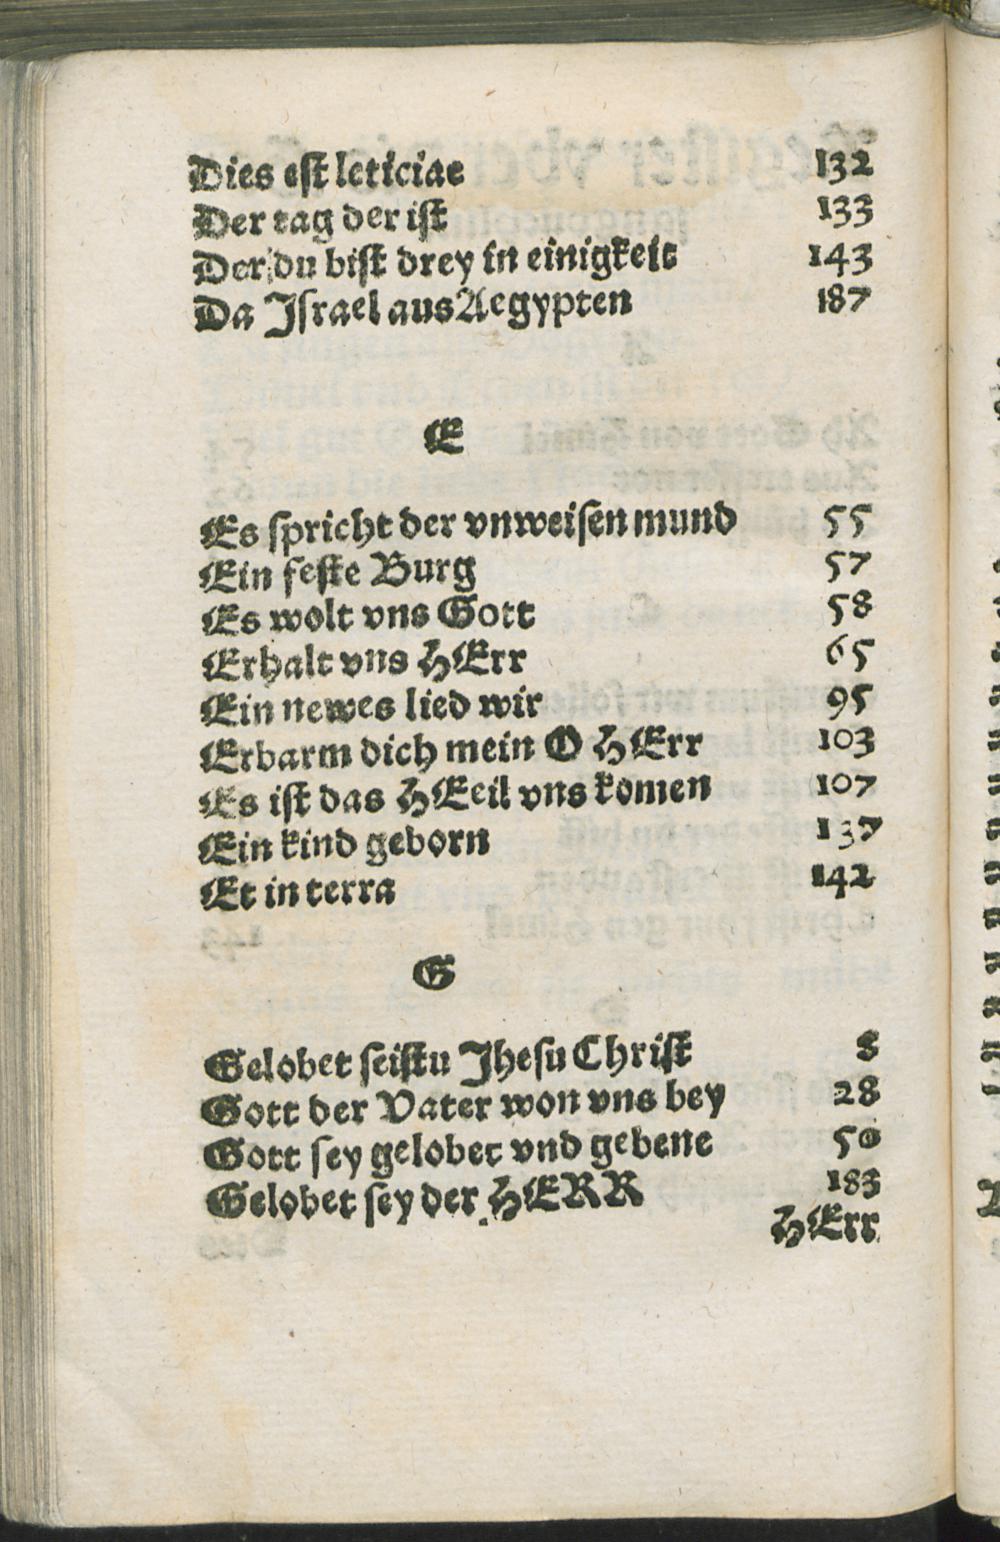 Dies est leticiae 132
Der tag der ist 133
Der du bist drey in einigkeit 143
Da Israel aus Aegypten 187
E
Es spricht der vnweisen mund 55
Ein feste Burg 57
Es wolt vns Gott 58
Erhalt vns HErr 65
Ein newes lied wir 95
Erbarm dich mein O HErr 103
Es ist das HEeil vns komen 107
Ein kind geborn 137
Et in terra 142
G
Gelobet seistu Jhesu Christ 8
Gott der Vater won vns bey 28
Gott sey gelobet vnd gebene 50
Gelobet sey der HERR 183
HErr